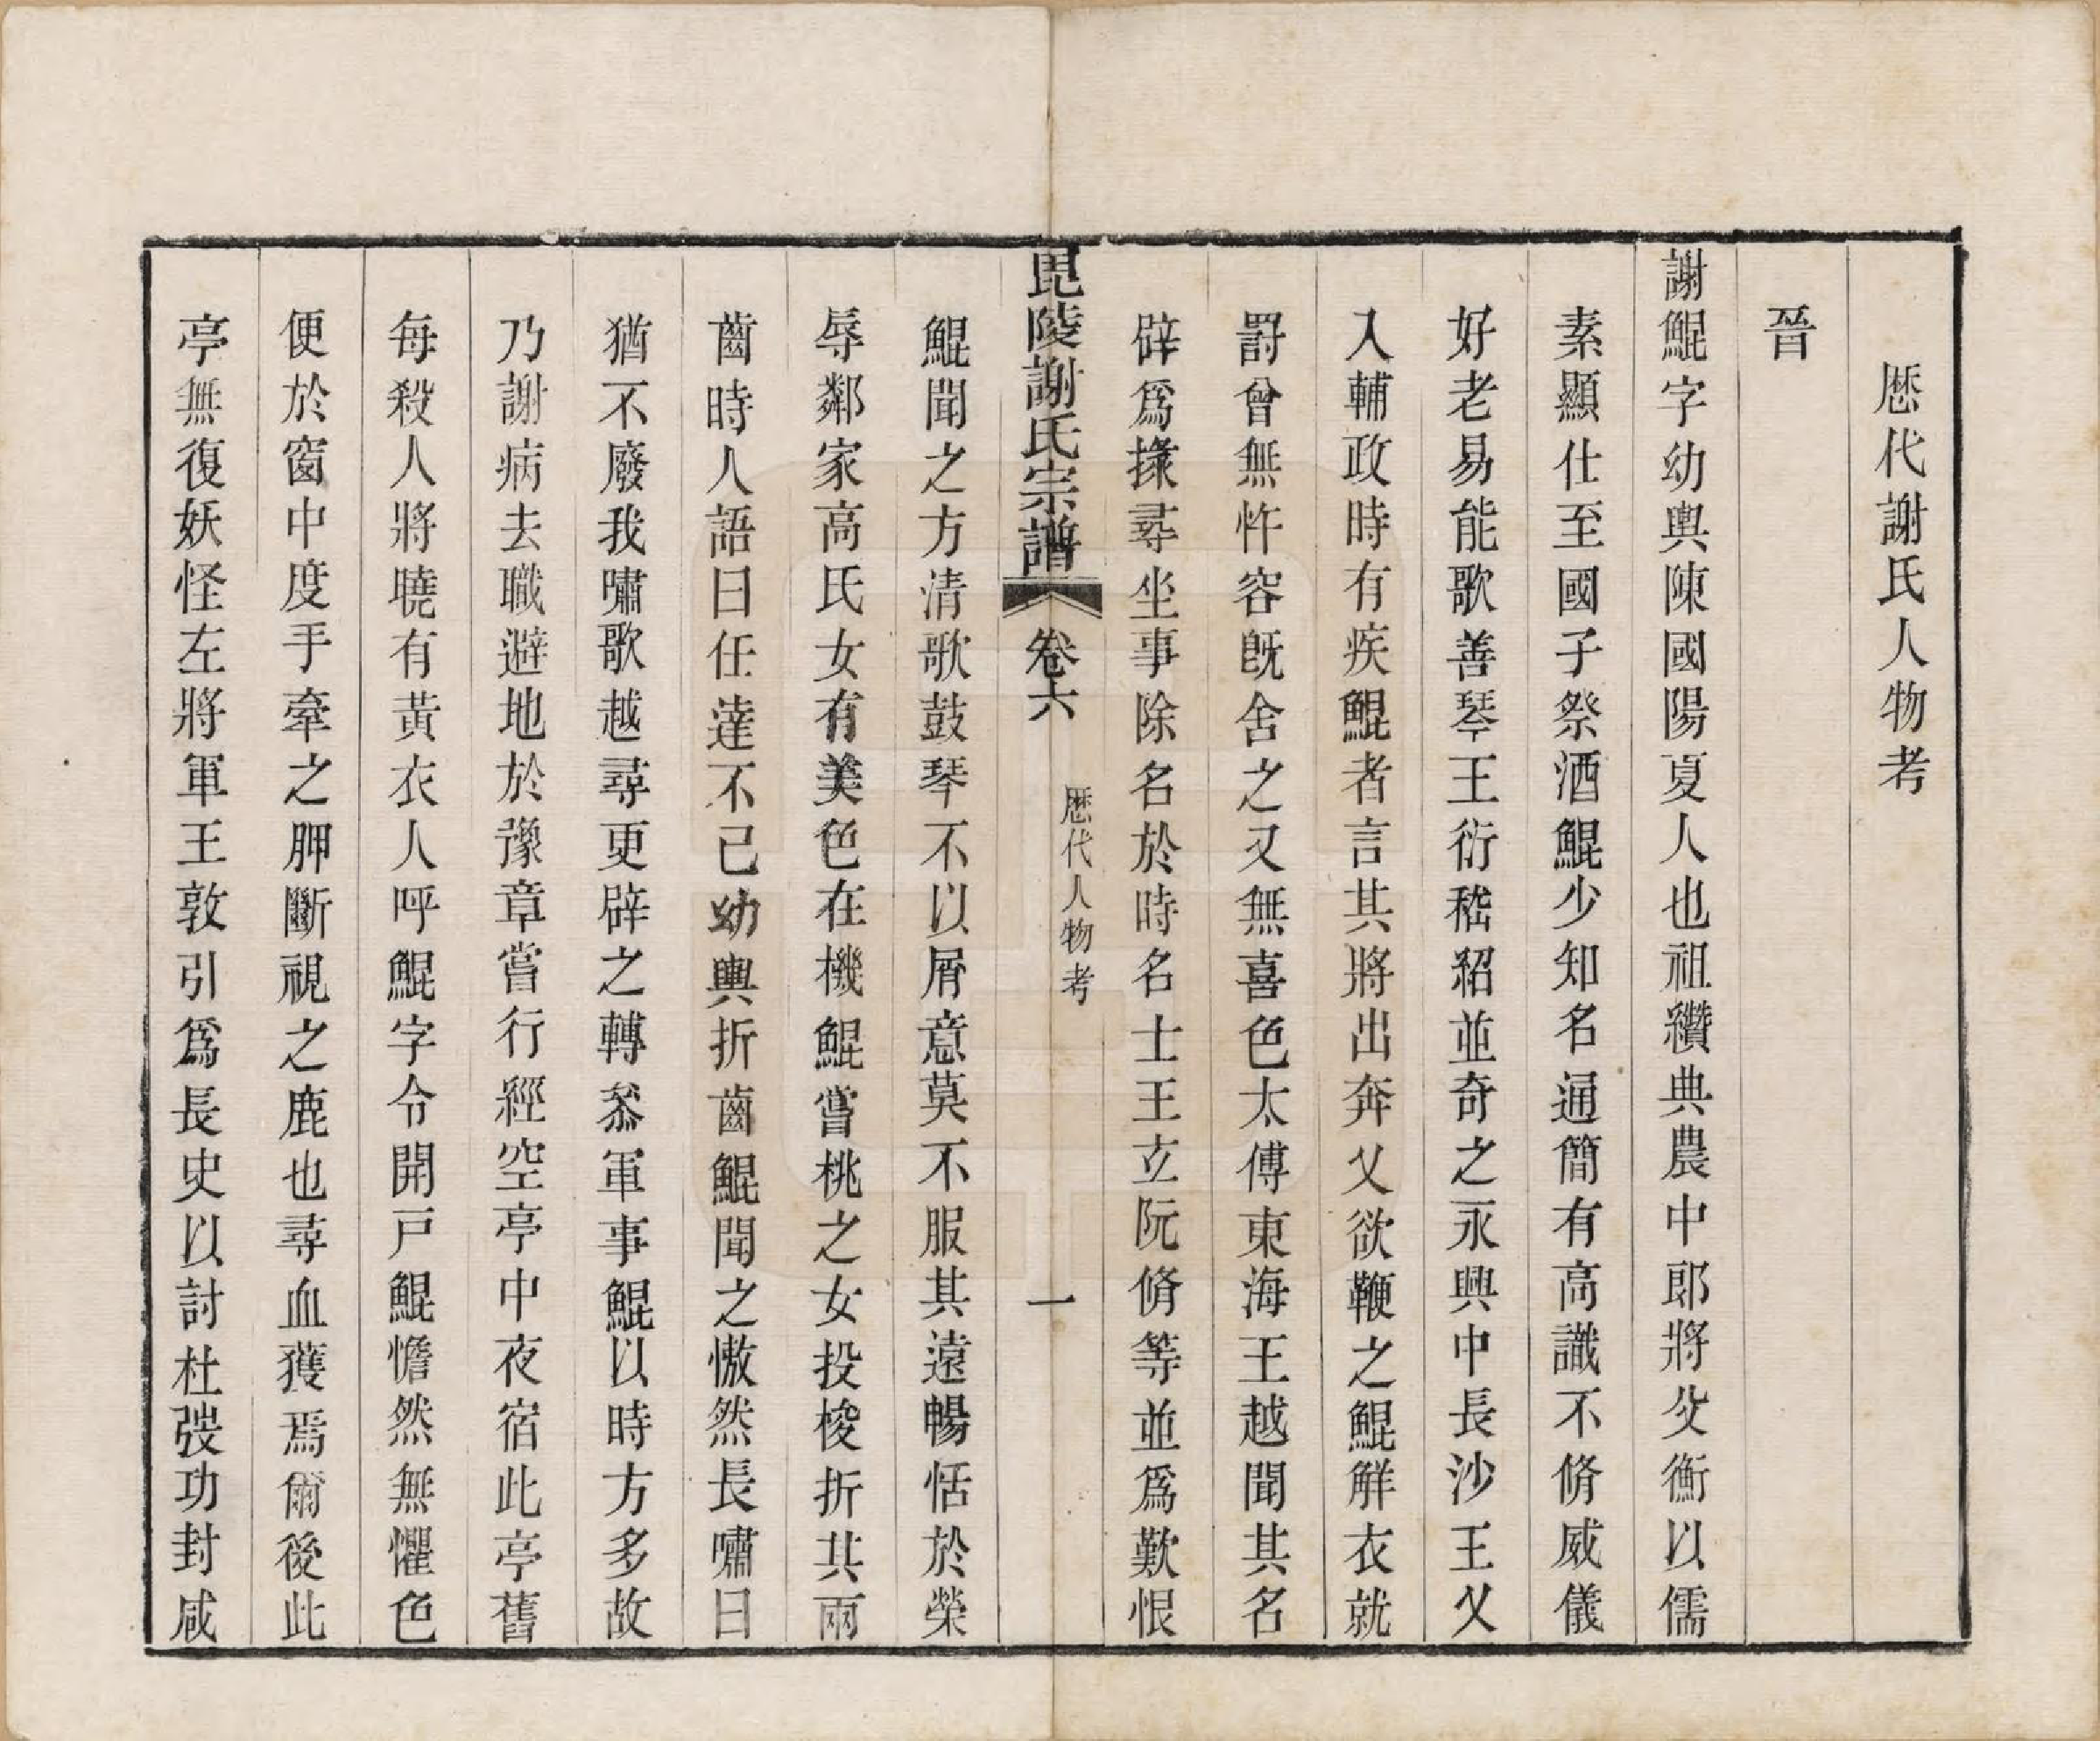 歷代謝氏人物考
晉
謝鯤字幼輿陳國陽夏人也祖纘典農中郎將父衡以儒
素顯仕至國子祭酒鯤少知名通簡有高識不脩威儀
好老易能歌善琴王衍嵇紹並奇之永興中長沙王乂
入輔政時有疾鯤者言其將出奔乂欲鞭之鯤解衣就
罸曾無忤容旣舍之又無喜色太傅東海王越聞其名
辟爲掾尋坐事除名於時名士王玄阮脩等並爲歎恨
毘陵謝氏宗譜 卷六 歷代人物考 一
鯤聞之方清歌鼓琴不以屑意莫不服其遠暢恬於榮
辱鄰家高氏女有美色在機鯤嘗桃之女投梭折其兩
齒時人語曰任達不已幼輿折齒鯤聞之傲然長嘯曰
猶不廢我嘯歌越尋更辟之轉叅軍事鯤以時方多故
乃謝病去職避地於豫章嘗行經空亭中夜宿此亭舊
每殺人將曉有黃衣人呼鯤字令開戸鯤憺然無懼色
便於窗中度手牽之胛斷視之鹿也尋血獲焉爾後此
亭無復妖怪左將軍王敦引爲長史以討杜弢功封咸